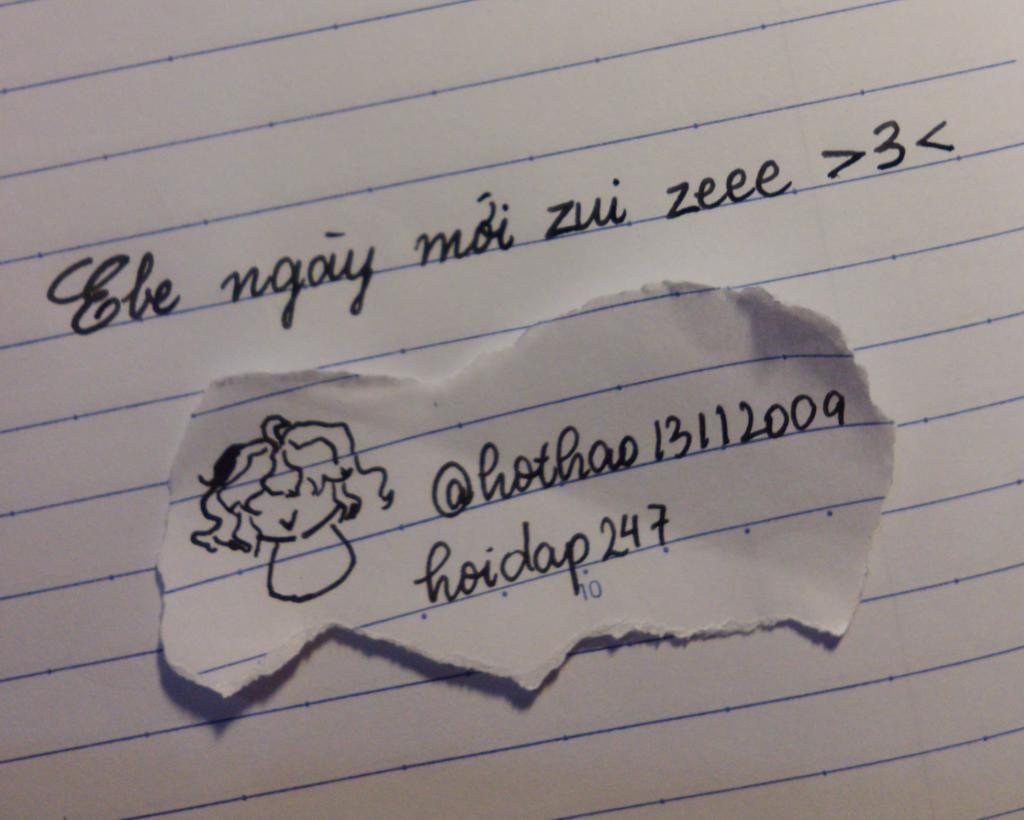 Ebe ngày mới zui zeee >3<
@hothao13112009
hoidap247
10